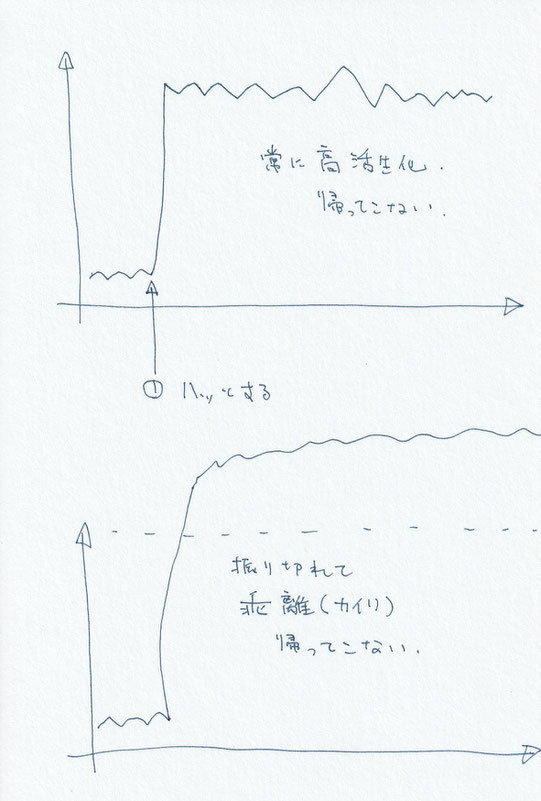 常に高活生化.
帰ってこない.
① ハッとする
振り切れて
乖離(カイリ)
帰ってこない.